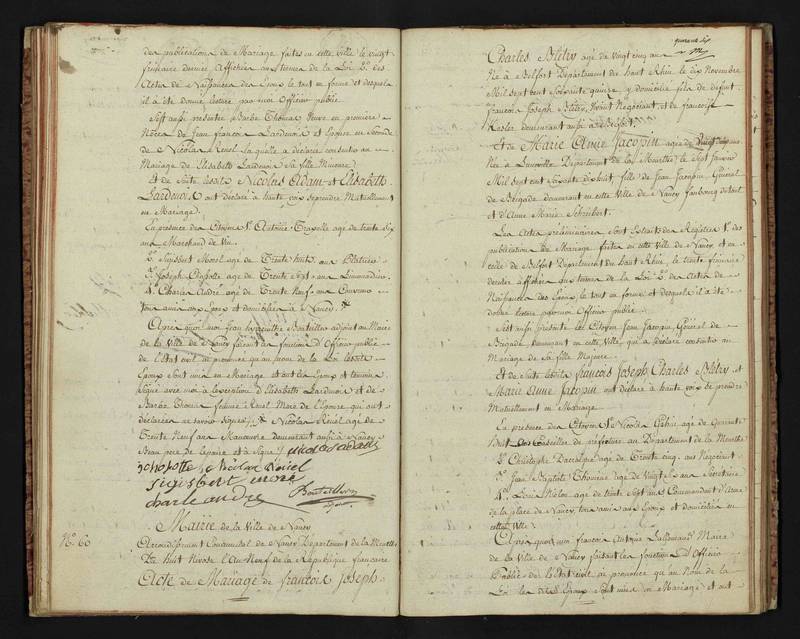 des publications de Mariage faites en cette ville le vingt
frimaire dernier affichées aux termes de la Loi 2.° des
Actes de Naissances des Epoux le tout en forme et desquels
il a été donné lecture par moi Officier public
S'est aussi présentée Barbe Thomas Veuve en premières
Nôces de Jean françois Lardenois et Epouse en seconde
de Nicolas Renel laquelle a déclaré consentir au
Mariage de Elisabeth Lardenois sa fille Mineure
Et de suite lesdits Nicolas Adam et Elisabeth
Lardenois ont déclaré à haute voix se prendre Mutuellement
en Mariage.
En présence des Citoyens 1.° Antoine Chapelle agé de trente six
ans Marchand de Vin
2.° Sigisbert Morel agé de Trente huit ans Platrier
3.° Joseph Chapotte agé de Trente Sept ans Limonadier
4.° Charles André agé de Trente Neuf ans
tous amis des Epoux et domiciliés à Nancy
Après quoi moi Jean hyacinthe Bouteiller adjoint au Maire
de la Ville de Nancy faisant les fonctions d'Officier public
de l'Etat civil ai prononcé qu'au Nom de la Loi lesdits
Epoux sont unis en Mariage et ont les Epoux et témoins
signé avec moi à l'exception d'Elisabeth Lardenois et de
Barbe Thomas femme Renel Mere de l'Epouse qui ont
déclaré ne savoir signer Nicolas Renel agé de
Trente Neuf ans Manœuvre demeurant aussi à Nancy
Beau pere de l'épouse et a signé nicolas adam
j chapotte nicolas Renel
sigisbert morel
charle andre Bouteiller
adjoint
Mairie de la Ville de Nancy
N.° 60 Arrondissement Communal de Nancy Département de la Meurthe
Du huit Nivose l'An Neuf de la République française
Acte de Mariage de françois Joseph
quarante six
Charles Blétry agé de Vingt cinq ans
Né à Belfort Département du haut Rhin le dix Novembre
Mil sept cent soixante quinze y domicilié fils de defunt
françois Joseph Blétry, Vivant Négociant, et de françoise
Keller demeurant aussi à Belfort
Et de Marie Anne Jacopin agée de Vingt
Née à Luneville Département de la Meurthe le Sept Janvier
Mil sept cent soixante dix huit, fille de Jean Jacopin, Général
de Brigade demeurant en cette Ville de Nancy faubourg
et d'Anne Marie Schreibert.
Les Actes préliminaires sont Extraits des Registres 1.° des
publications de Mariage faites en cette Ville de Nancy et en
celle de Belfort Département du haut Rhin, le trente frimaire
dernier affichées aux termes de la Loi 2.° des Actes de
Naissances des Epoux le tout en forme et desquels il a été
donné lecture par moi Officier public
S'est aussi présenté le Citoyen Jean Jacopin Général de
Brigade, demeurant en cette Ville, qui a déclaré consentir au
Mariage de sa fille Majeure
Et de suite lesdits françois Joseph Charles Blétry et
Marie Anne Jacopin ont déclaré à haute voix se prendre
Mutuellement en Mariage
En présence des Citoyens 1.° Nicolas agé de Quarante
huit ans Conseiller de préfecture au Département de la Meurthe
2.° Christophe agé de Trente cinq ans Négociant
3.° Jean Baptiste Thouvenel agé de Vingt ans Secretaire
4.° Louis agé de trente Sept ans Commandant d'Armes
de la place de Nancy, tous amis des Epoux et domiciliés en
cette Ville
Après quoi moi françois Antoine Lallemand Maire
de la Ville de Nancy faisant les fonctions d'Officier
Public de l'Etat civil ai prononcé qu'au Nom de la
Loi lesdits Epoux sont unis en Mariage et ont